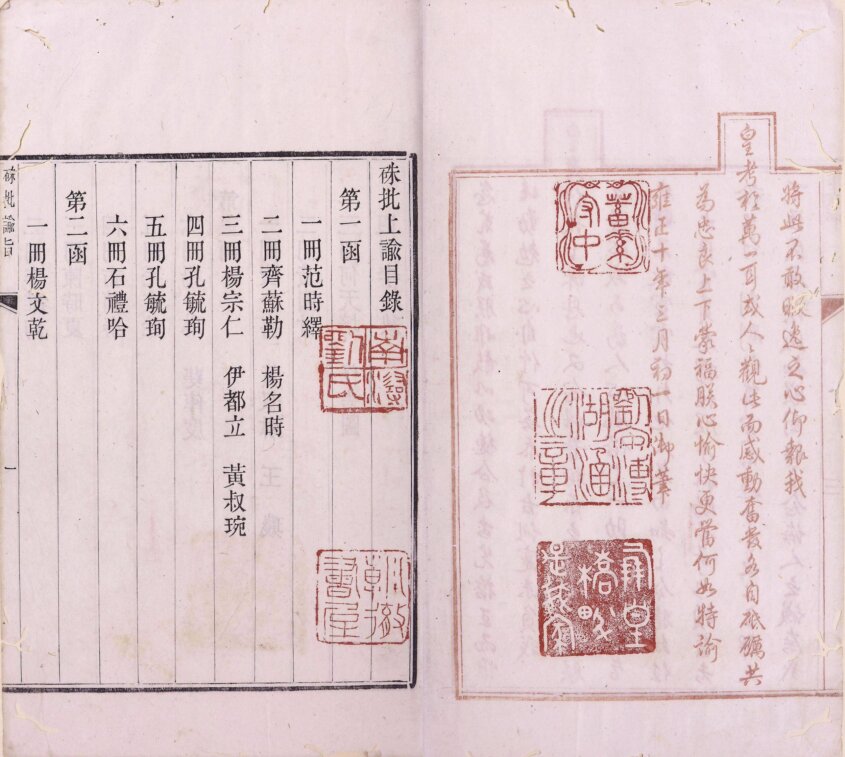 將此不敢暇逸之心仰報我
皇考於萬一耳或人〻觀此而感動奮發各自砥礪共
為忠良上下蒙福朕心愉快更當何如特諭
雍正十年三月初一日御筆
蓄素守中
硃批上諭目錄
第一函
一冊范時繹
二冊齊蘇勒 楊名時
三冊楊宗仁 伊都立 黃叔琬
四冊孔毓珣
五冊孔毓珣
六冊石禮哈
第二函
一冊楊文乾
南潯劉氏
硃批諭旨
一